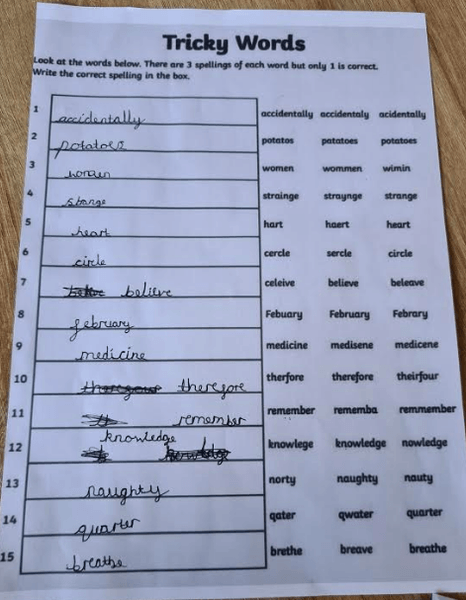 Tricky Words
Look at the words below. There are 3 spellings of each word but only 1 is correct.
Write the correct spelling in the box.
1 accidentally accidentally accidentaly acidentally
2 potatoes potatos potatoes potaotes
3 women women wommen wimin
4 strange strainge straynge strange
5 heart hart haert heart
6 circle cercle sercle circle
7 believe celeive believe beleave
8 february Febuary February Febrary
9 medicine medicine medisene medicene
10 therefore therfore therefore theirfour
11 remember remember rememba remmember
12 knowledge knowlege knowledge nowledge
13 naughty norty naughty nauty
14 quarter qater qwater quarter
15 breathe brethe breave breathe